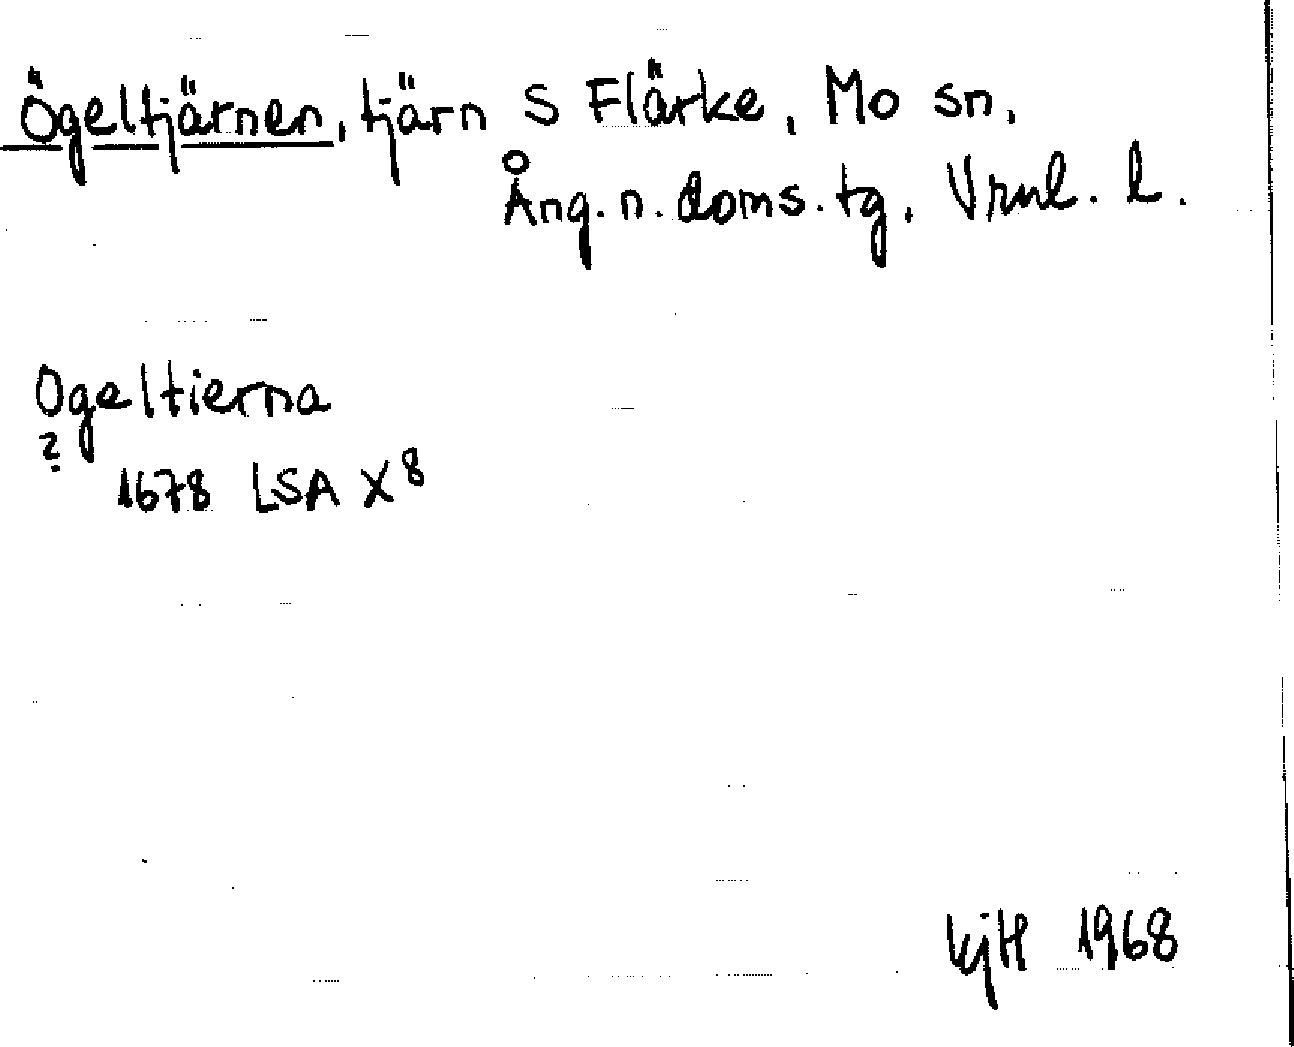 Ögeltjärnen, tjärn S Flärke, Mo sn,
Ång. n. doms. tg, Vrnl. l.
Ogeltierna
?
1678 LSA X8
kjH 1968